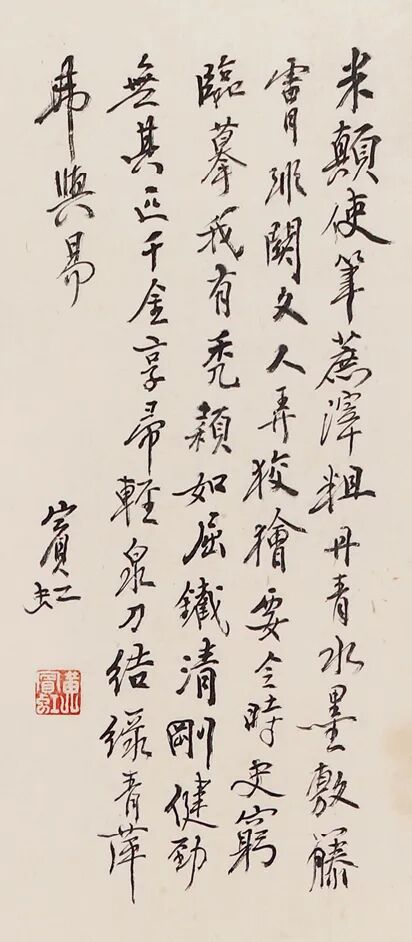 米顛使筆蔗滓粗丹青水墨敷籐
雪月雕闕文人弄狡獪要令時史窮
臨摹我有禿穎如屈鐵清剛健勁
無其匹千金享帚輕泉刀結綠青萍
弗與易
賓虹
黃賓虹